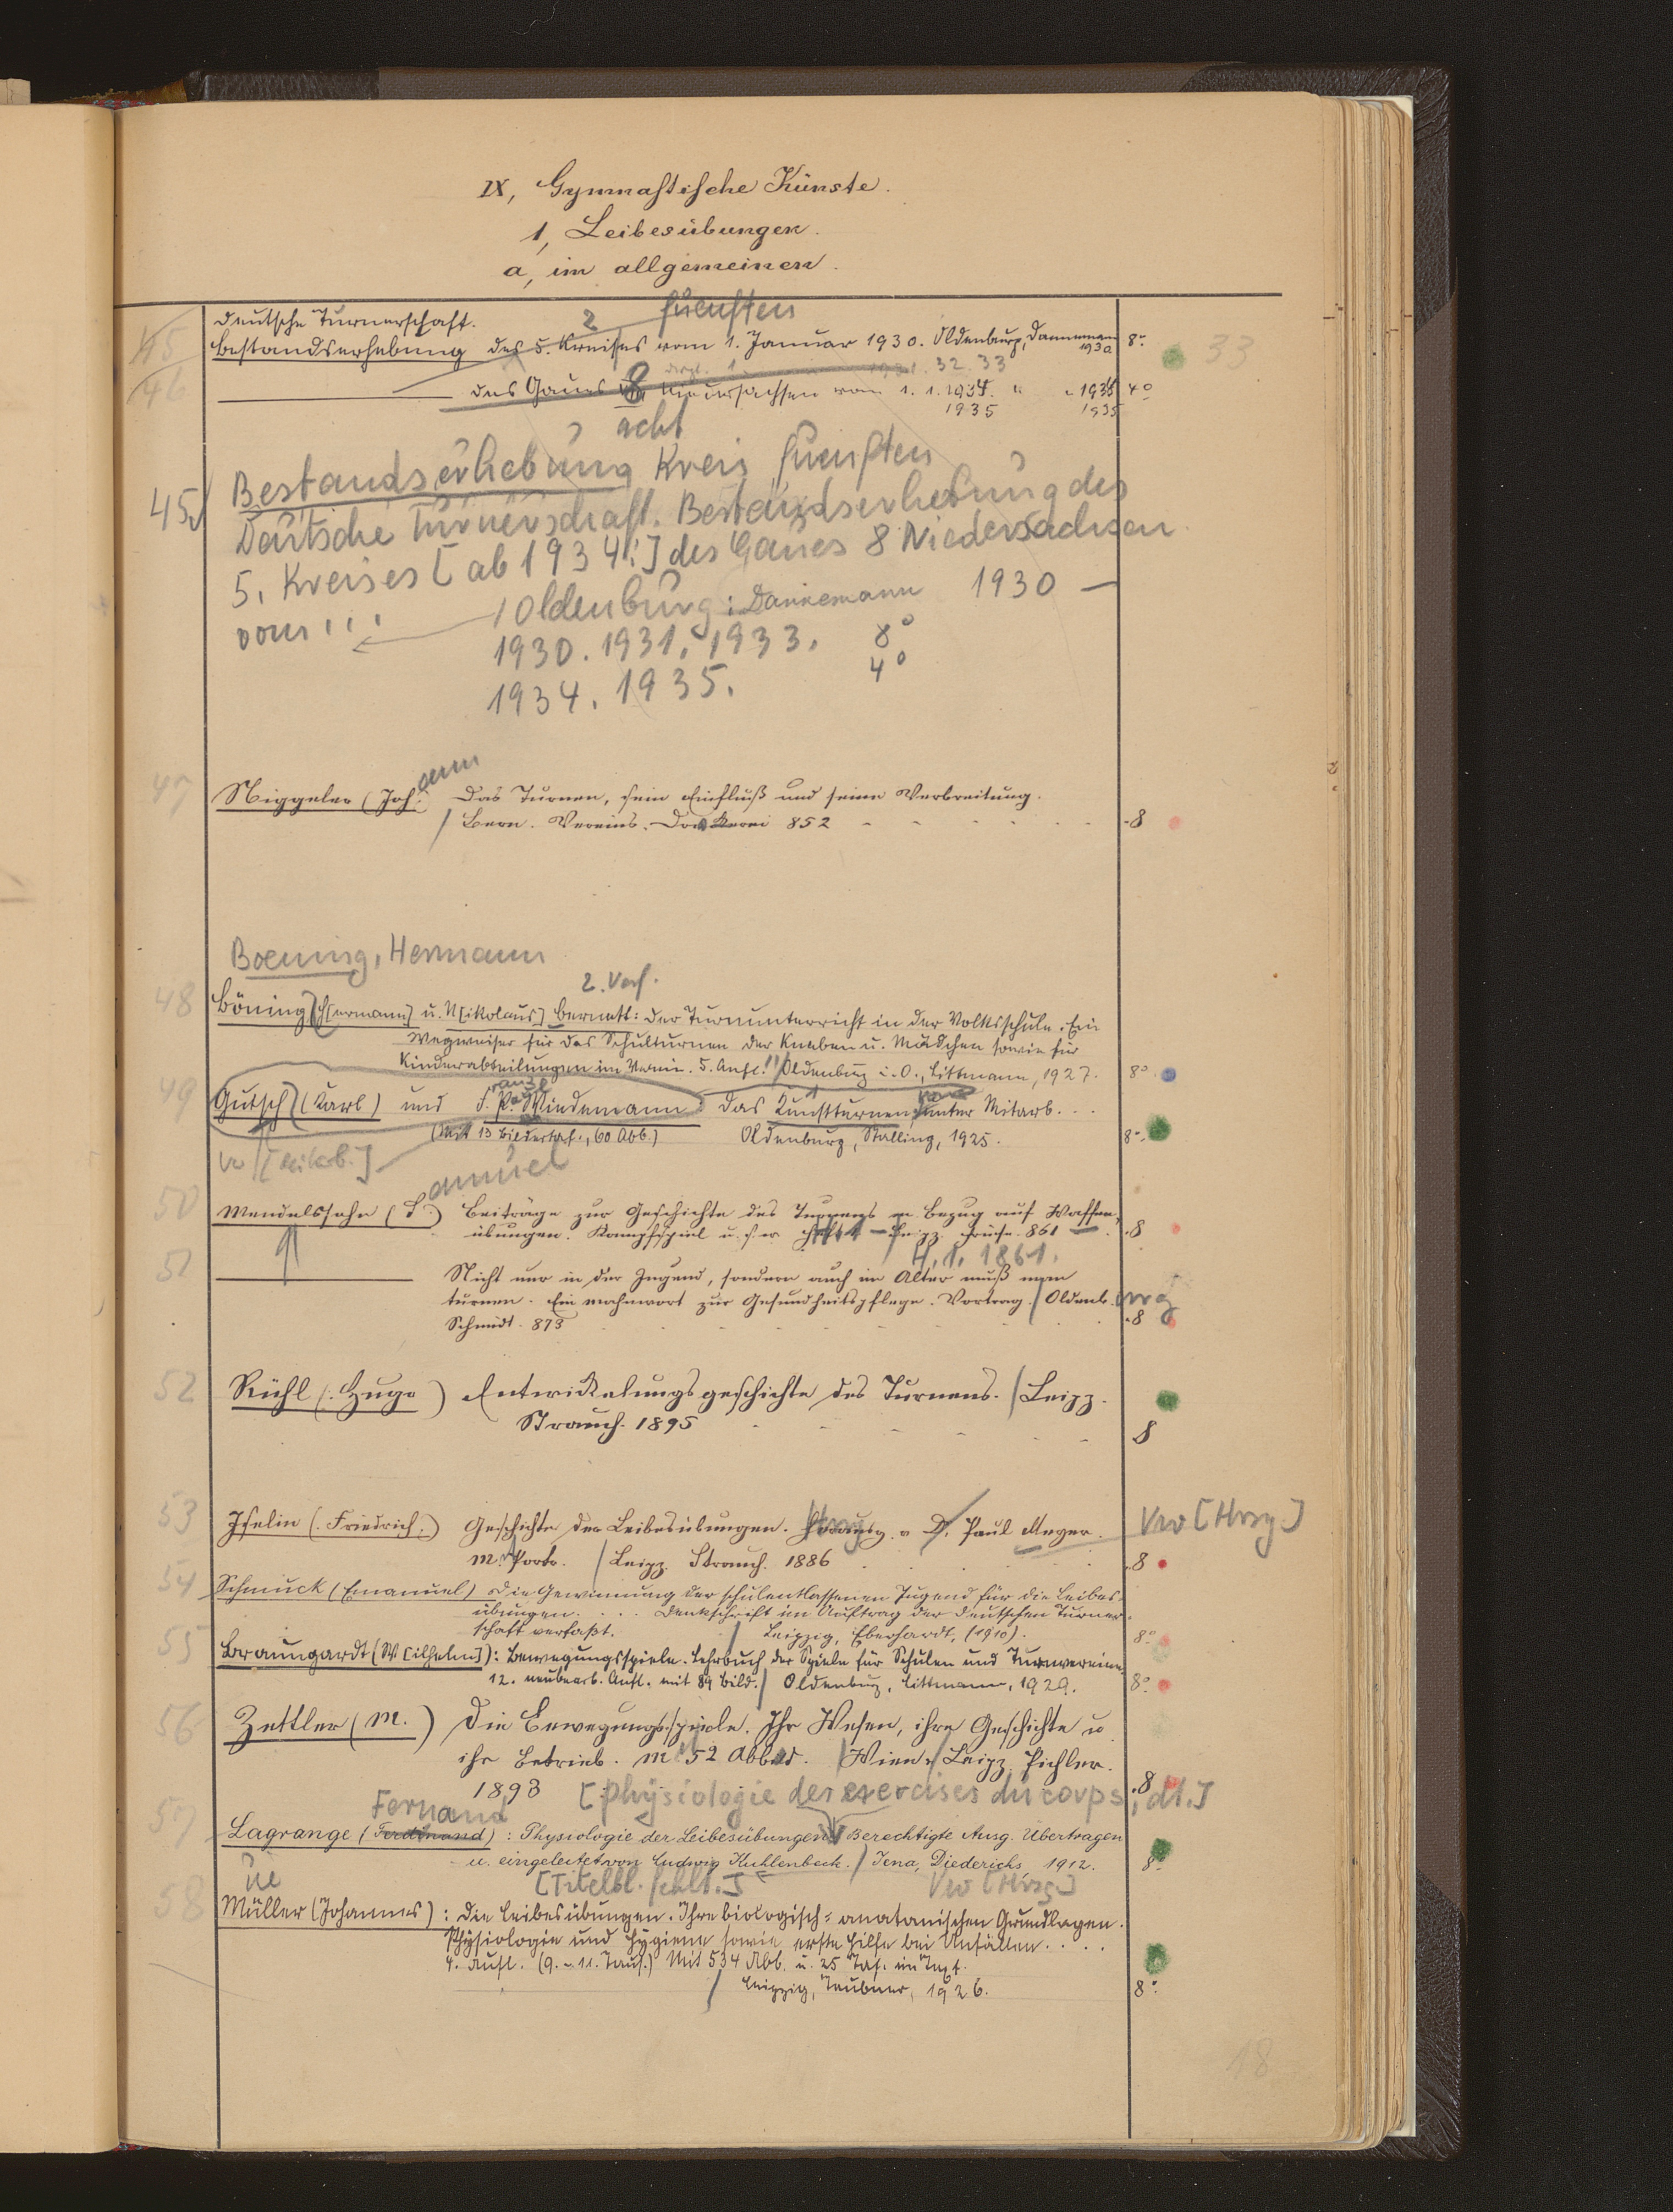 IX, Gymnastische Künste.
1, Leibesübungen.
a, im allgemeinen.
33
45
Deutsche Turnerschaft.
2 fuenften
Bestandserhebung des 5. Kreises vom 1. Januar 1930. Oldenburg, Dannemann 1930 8°
1931. 32. 33
46 des Gaues 8 Niedersachsen vom 1. 1. 1934. " " 1934 4°
1935 1935
acht
45 Bestandserhebung Kreis fuenften
Deutsche Turnerschaft. Bestandserhebung des
5. Kreises [ab 1934:] des Gaues 8 Niedersachsen
vom ... / Oldenburg: Dannemann 1930 —
1930. 1931. 1933. 8°
1934. 1935. 4°
47 Niggeler (Joh. ann Das Turnen, sein Einfluß und seine Verbreitung.
/ Bern. Vereins-Druckerei 852 - - - - - - -8
Boening, Hermann
2. Verf.
48 Böning H[ermann] u. N[ikolaus] Bernett: Der Turnunterricht in der Volksschule. Ein
Wegweiser für das Schulturnen der Knaben u. Mädchen sowie für
Kinderabteilungen im Verein. 5. Aufl. / Oldenburg i. O., Littmann, 1927. 8°
49 Gutsch (Karl) und F. P. Wiedemann: Das Kunstturnen unter Mitarb. ...
(Mit 13 Bildertaf., 60 Abb.) Oldenburg, Stalling, 1925. 8°
Vw [Mitarb.]
amuel
50 Mendelssohn (S.) Beiträge zur Geschichte des Turnens in Bezug auf Waffen-
übungen. Kampfspiel u. s. w. Heft 1 — Leipz. 861 — -8
H. 1. 1861.
51 Nicht nur in der Jugend, sondern auch im Alter muß man
turnen. Ein Mahnwort zur Gesundheitspflege. Vortrag. / Oldenb. urg
Schmidt. 873 -8
52 Rühl (Hugo) Entwickelungsgeschichte des Turnens. / Leipz.
Strauch. 1895 - - - - - 8
53 Iselin (Friedrich.) Geschichte der Leibesübungen. Herausg. v. D. Paul Meyer. Vw [Hrsg.]
m. Portr. / Leipz. Strauch. 1886 -8
54 Schmuck (Emanuel) Die Gewinnung der schulentlassenen Jugend für die Leibes-
übungen. ... Denkschrift im Auftrag der Deutschen Turner-
schaft verfaßt. / Leipzig, Eberhardt, (1910). 8°
55 Braungardt (W[ilhelm]): Bewegungsspiele. Lehrbuch der Spiele für Schulen und Turnvereine.
12. neubearb. Aufl. mit 89 Bild. / Oldenburg, Littmann, 1929. 8°
56 Zettler (M.) Die Bewegungsspiele. Ihr Wesen, ihre Geschichte u.
ihr Betrieb. M. 52 Abbild. / Wien, Leipz. Pichler.
1893 -8
[Physiologie des exercises du corps, dt.]
Fernand
57 Lagrange (Ferdinand): Physiologie der Leibesübungen. Berechtigte Ausg. Übertragen
u. eingeleitet von Ludwig Kuhlenbeck. / Jena, Diederichs, 1912. 8°
ue [Titelbl. fehlt.] Vw [Hrsg.]
58 Müller (Johannes): Die Leibesübungen. Ihre biologisch-anatomischen Grundlagen.
Physiologie und Hygiene sowie erste Hilfe bei Unfällen. . . .
4. Aufl. (9.-11. Taus.) Mit 534 Abb. u. 25 Taf. im Text.
/ Leipzig, Teubner, 1926. 8°
18